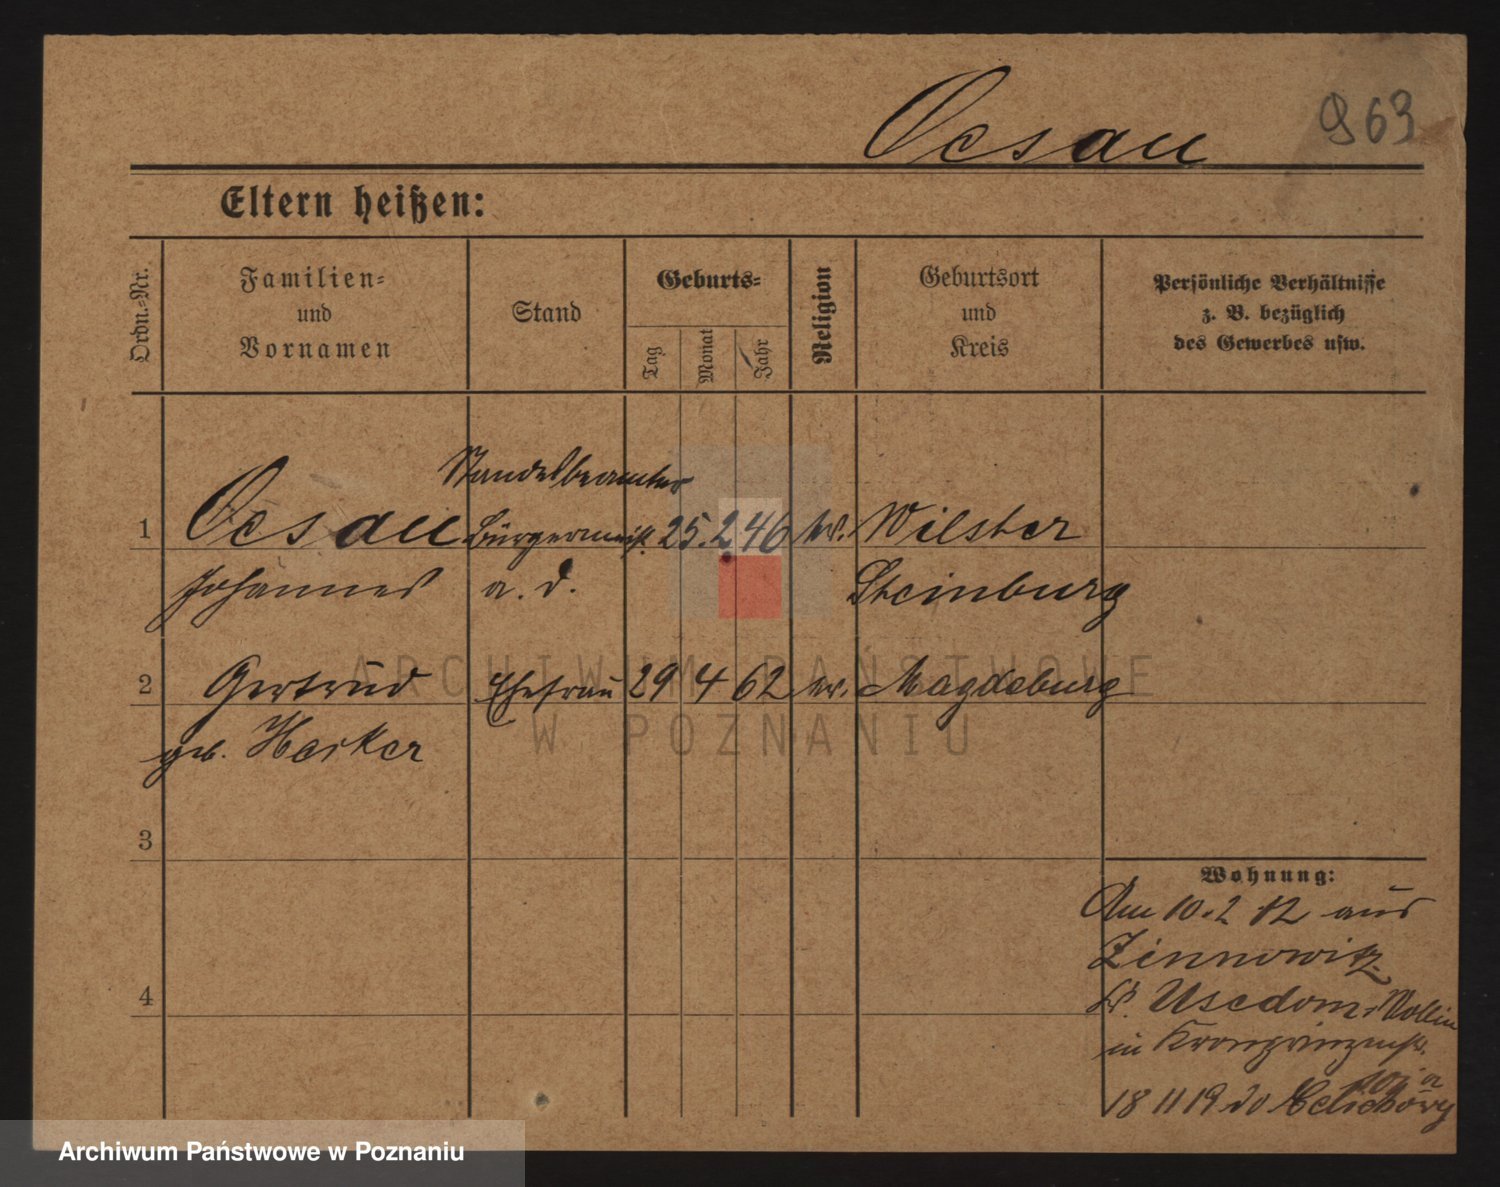 Oesau
963
Eltern heißen:
Ordn.-Nr.
Familien-
und
Vornamen
Stand
Geburts-
Tag
Monat
Jahr
Religion
Geburtsort
und
Kreis
Persönliche Verhältnisse
z. B. bezüglich
des Gewerbes usw.
Standesbeamter
1 Oesau Bürgermeist. 25. 2 46 ev. Wilster
Johannes a. D. Steinburg
2 Gertrud Ehefrau 29 4 62 ev. Magdeburg
geb. Harker
3
4
Wohnung:
Am 10. 2 12 aus
Zinnowitz
Kr. Usedom-Wollin
in Kronprinzenstr.
18 11 19 do
ARCHIWUM PAŃSTWOWE
W POZNANIU
Archiwum Państwowe w Poznaniu